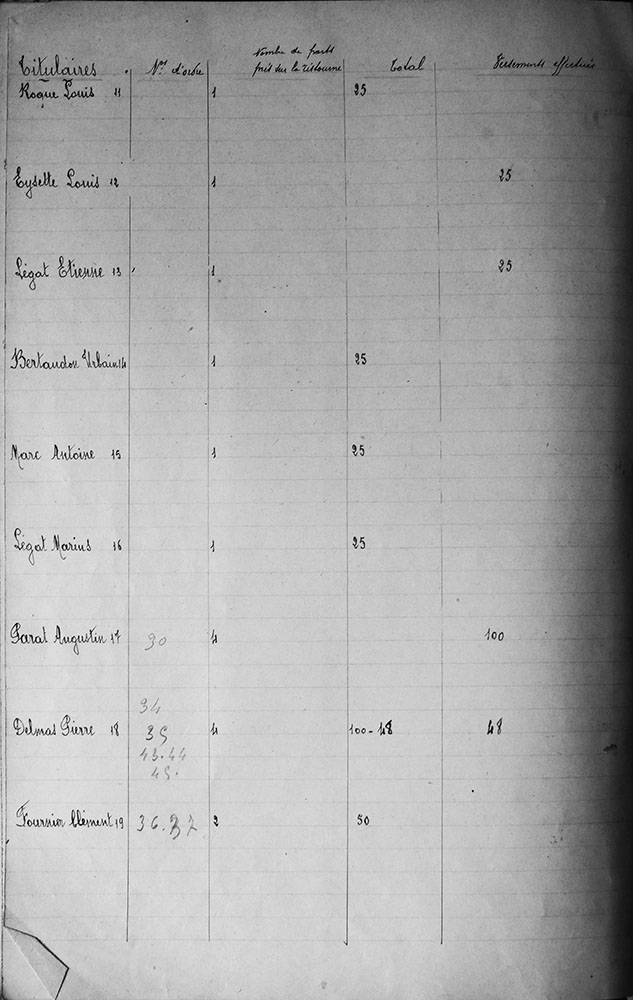 Nombre de parts
Titulaires . Nos d'ordre pris sur la ristourne Total Versements effectués
Roque Louis 11 1 25
Eysette Louis 12 1 25
Légat Etienne 13 1 25
Bertaudon Urbain 14 1 25
Marc Antoine 15 1 25
Légat Marius 16 1 25
Parat Augustin 17 30 4 100
34
Delmas Pierre 18 35 4 100-48 48
43.44
45.
Fournier Clément 19 36.37 2 50